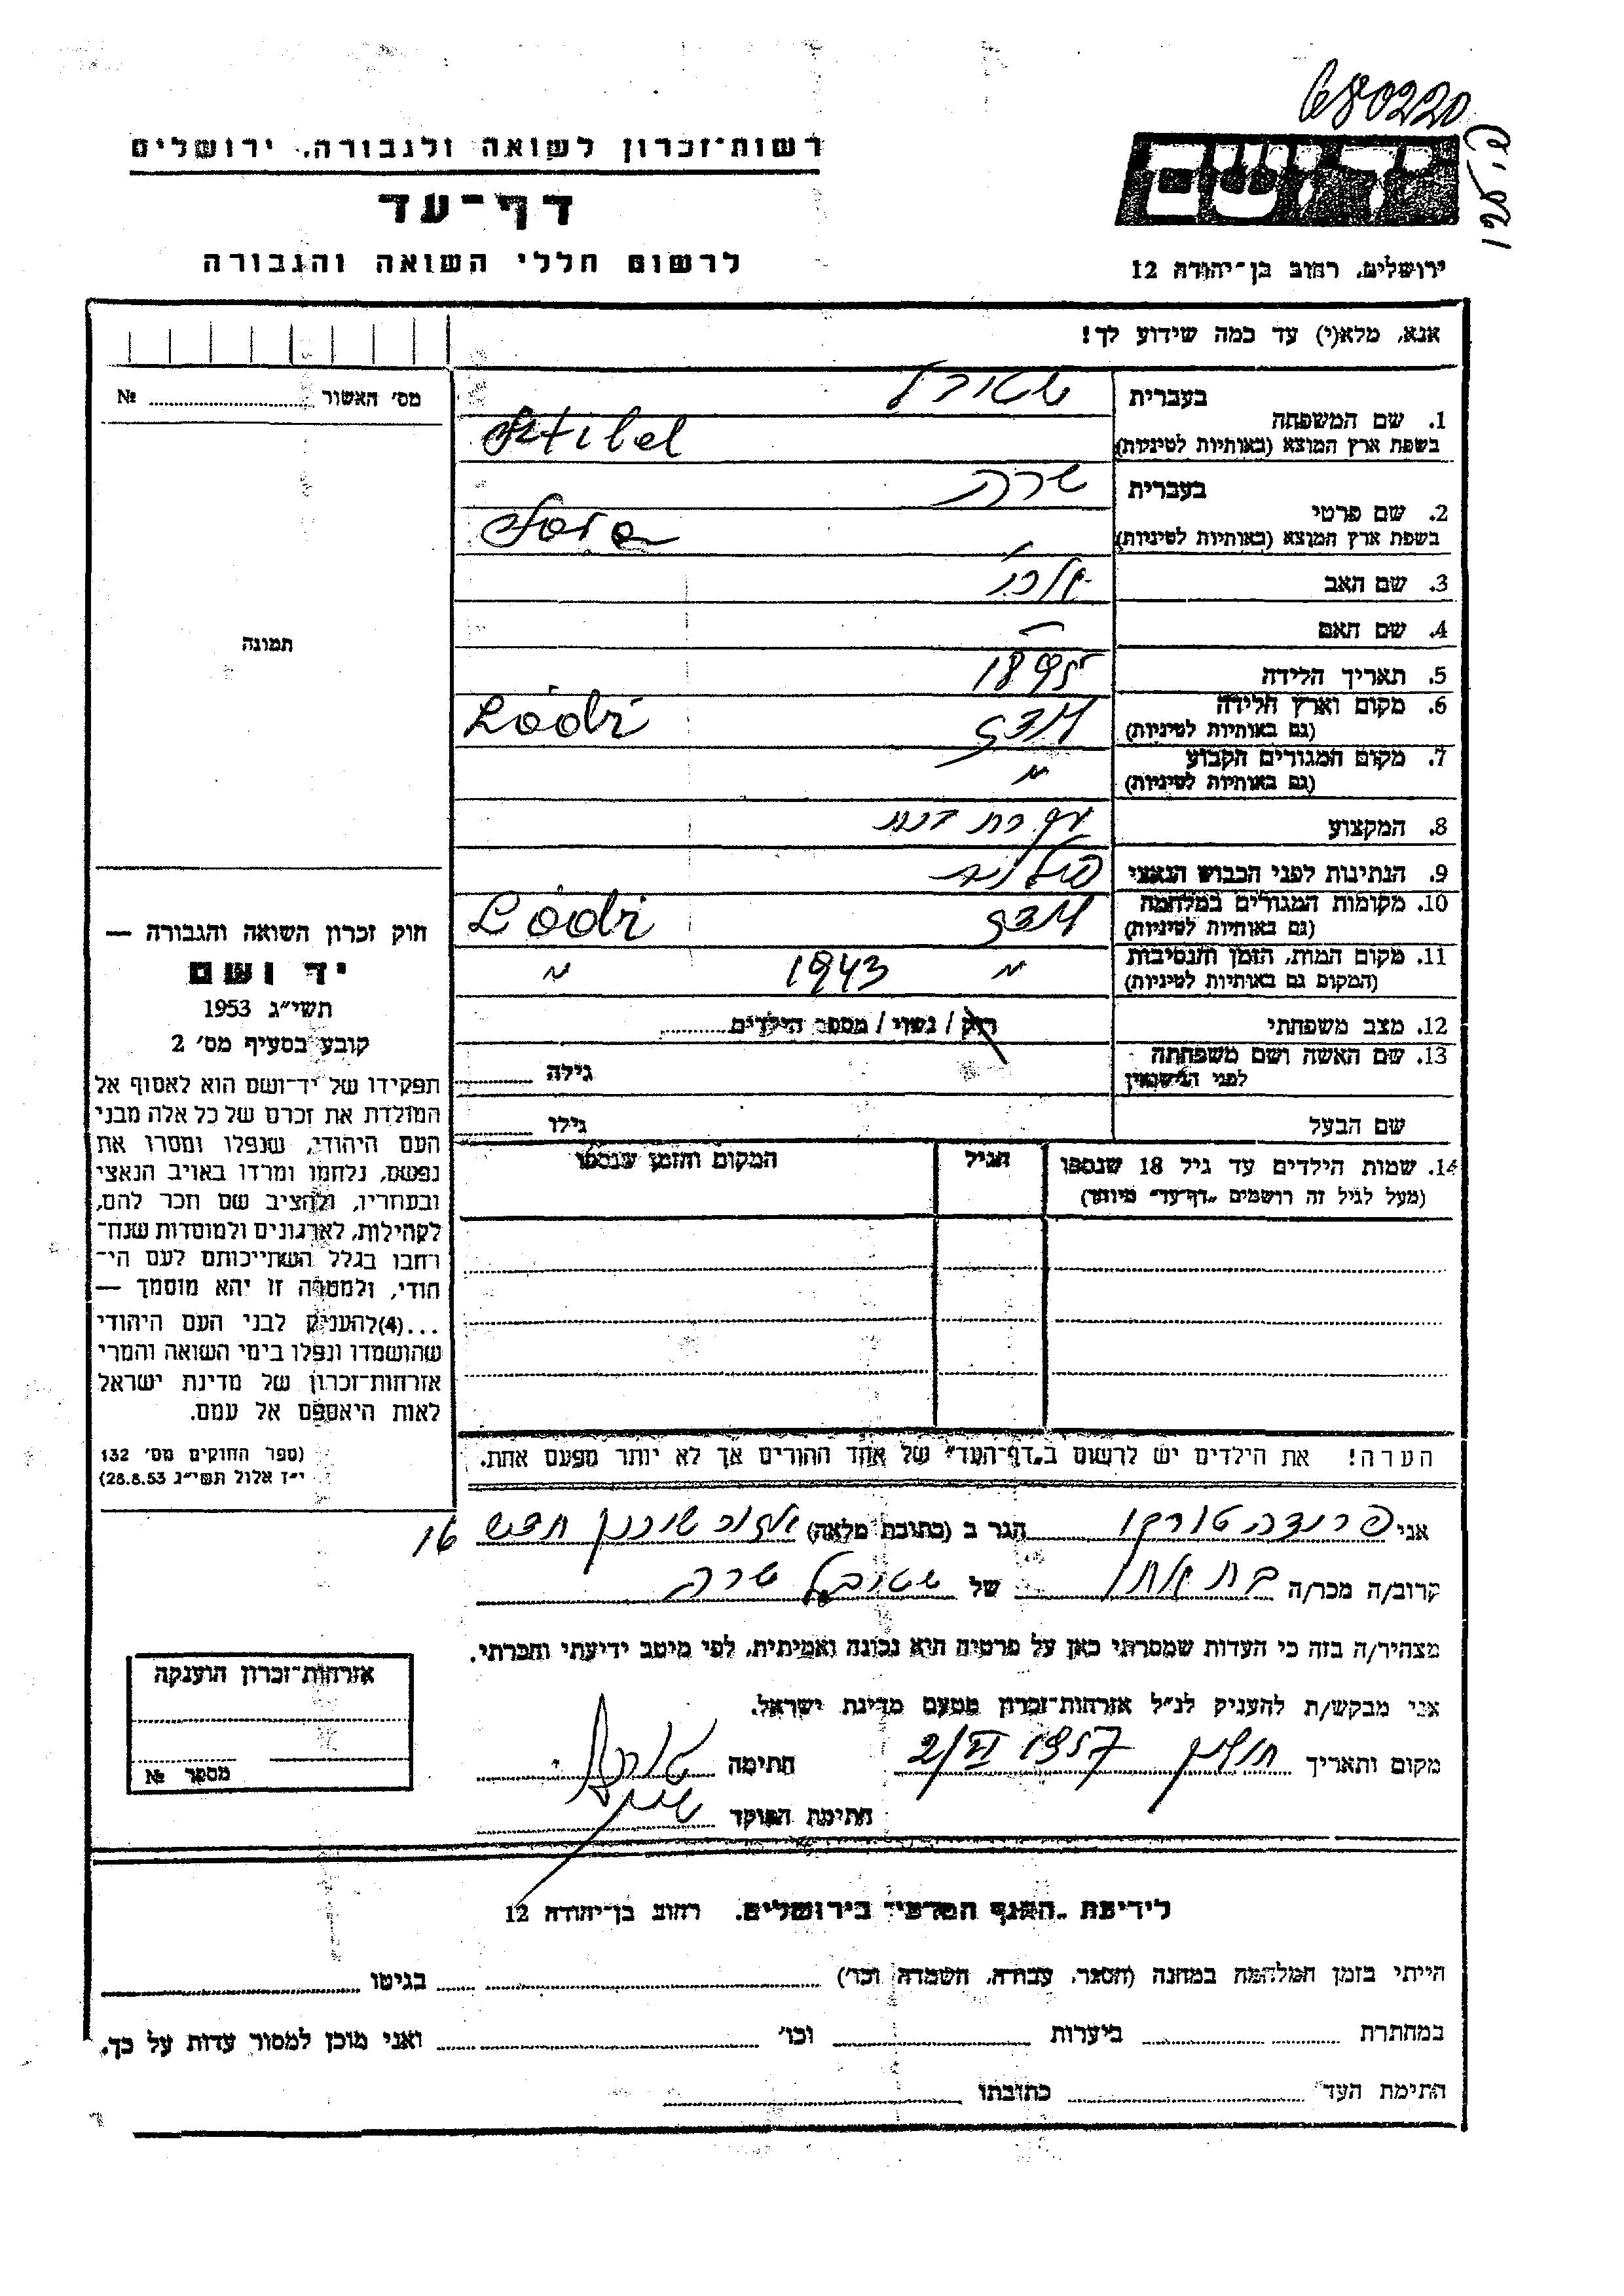 680220
רשות־זכרון לשואה ולגבורה, ירושלים
דף־עד
לרשום חללי השואה והגבורה
ירושלים, רחוב בן־יהודה 12
אנא, מלא(י) עד כמה שידוע לך!
מס׳ האשור № 
תמונה
בעברית
1. שם המשפחה
בשפת ארץ המוצא (באותיות לטיניות)
Sztibel
בעברית שרה
2. שם פרטי
בשפת ארץ המוצא (באותיות לטיניות)
Sara
3. שם האב
4. שם האם —
5. תאריך הלידה 1895
6. מקום וארץ הלידה לודז Łódź
(גם באותיות לטיניות)
7. מקום המגורים הקבוע ״
(גם באותיות לטיניות)
8. המקצוע עקרת בית
9. הנתינות לפני הכבוש הנאצי פולנית
10. מקומות המגורים במלחמה לודז Łódź
(גם באותיות לטיניות)
11. מקום המות, הזמן והנסיבות ״ 1943 ״
(המקום גם באותיות לטיניות)
12. מצב משפחתי רוק / נשוי / מספר הילדים
13. שם האשה ושם משפחתה
לפני הנישואין גילה
שם הבעל גילו
14. שמות הילדים עד גיל 18 שנספו
(מעל לגיל זה רושמים „דף־עד״ מיוחד)
הגיל
המקום והזמן שנספו
הערה! את הילדים יש לרשום ב„דף־העד״ של אחד ההורים אך לא יותר מפעם אחת.
חוק זכרון השואה והגבורה —
יד ושם
תשי״ג 1953
קובע בסעיף מס׳ 2
תפקידו של יד־ושם הוא לאסוף אל
המולדת את זכרם של כל אלה מבני
העם היהודי, שנפלו ומסרו את
נפשם, נלחמו ומרדו באויב הנאצי
ובעוזריו, ולהציב שם וזכר להם,
לקהילות, לארגונים ולמוסדות שנח־
רחבו בגלל השתייכותם לעם הי־
הודי, ולמטרה זו יהא מוסמך —
...(4)להעניק לבני העם היהודי
שהושמדו ונפלו בימי השואה והמרי
אזרחות־זכרון של מדינת ישראל
לאות היאספם אל עמם.
(ספר החוקים מס׳ 132
י״ז אלול תשי״ג 28.8.53)
אני הגר ב (כתובת מלאה) אזור שיכון חדש 16
קרוב/ה מכר/ה בת אחו של שטיבל שרה
מצהיר/ה בזה כי העדות שמסרתי כאן על פרטיה היא נכונה ואמיתית, לפי מיטב ידיעתי והכרתי.
אני מבקש/ת להעניק לנ״ל אזרחות־זכרון מטעם מדינת ישראל.
מקום ותאריך חולון 2/VI 1957 חתימה
חתימת הפוקד
אזרחות־זכרון הוענקה
מספר №
לידיעת „האגף המדעי״ בירושלים, רחוב בן־יהודה 12
הייתי בזמן המלחמה במחנה (הסגר, עבודה, השמדה וכו׳) בגיטו
במחתרת ביערות וכו׳ ואני מוכן למסור עדות על כך.
חתימת העד כתובתו